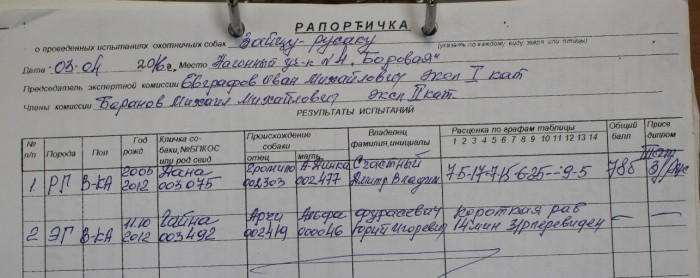 РАПОРТИЧКА
о проведенных испытаниях охотничьих собак Зайцу-русаку
(указать по каждому виду зверя или птицы)
Дата 03-04 2016г. Место Нагонный уч-к п/н „Боровая"
Председатель экспертной комиссии Евграфов Иван Михайлович эксп I кат
Члены комиссии Баранов Михаил Михайлович эксп II кат.
РЕЗУЛЬТАТЫ ИСПЫТАНИЙ
№ п/п Порода Пол Год рожд Кличка собаки,№БПКОС или род свид. Происхождение собаки отец мать Владелец фамилия,инициалы Расценка по графам таблицы 1 2 3 4 5 6 7 8 9 10 11 12 13 14 Общий балл Присв диплом
1 РГ В-КА 2012 003075 002303 002477 Счастный Дмитр Владим 75-17-7-15-6-25--9-5 78б 3/рус
2 ЭГ В-КА 11.10 2012 Гайна 003492 Арчи 002419 Альфа 000046 Фурасевич Юрий Игоревич Короткая раб 14мин 3/перевиден — —